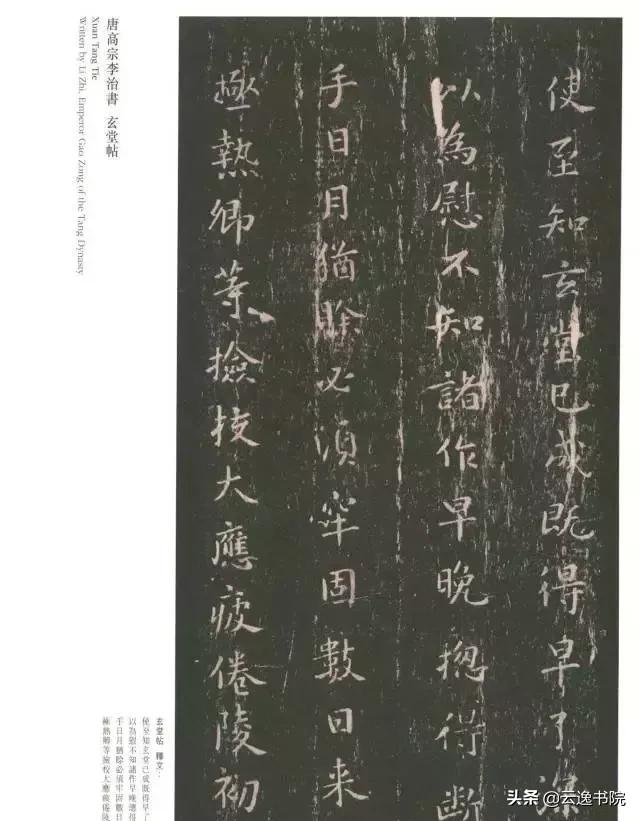 使至知玄堂已成既得早了深
以為慰不知諸作早晚揔得斷
手日月猶賒必須牢固數日来
極熱卿等撿挍大應疲倦陵初
唐高宗李治書 玄堂帖
Xuan Tang Tie
Written by Li Zhi, Emperor Gao Zong of the Tang Dynasty
玄堂帖 釋文：
使至知玄堂已成既得早了
以為慰不知諸作早晚總得
手日月猶賒必須牢固數日
極熱卿等撿校大應疲倦陵
头条 @云逸书院